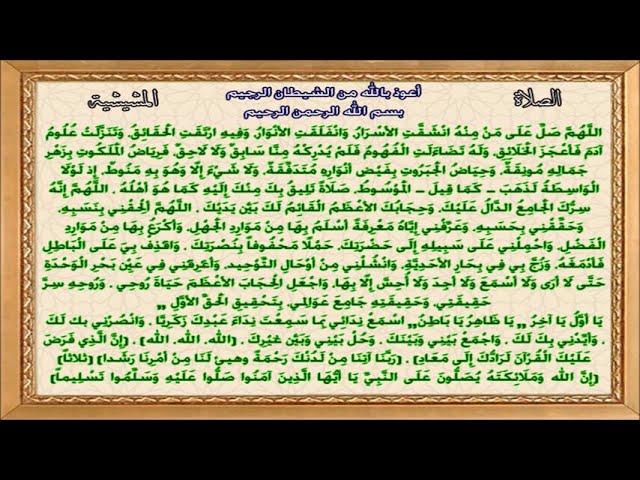 الصلاة المشيشية
أعوذ بالله من الشيطان الرجيم
بسم الله الرحمن الرحيم
اللَّهُمَّ صَلِّ عَلَى مَنْ مِنْهُ انْشَقَّتِ الأَسْرَارُ وَانْفَلَقَتِ الأَنْوَارُ وَفِيهِ ارْتَقَتِ الْحَقَائِقُ، وَتَنَزَّلَتْ عُلُومُ
آدَمَ فَأَعْجَزَ الْخَلَائِقَ، وَلَهُ تَضَاءَلَتِ الْفُهُومُ فَلَمْ يُدْرِكْهُ مِنَّا سَابِقٌ وَلَا لَاحِقٌ، فَرِيَاضُ الْمَلَكُوتِ بِزَهْرِ
جَمَالِهِ مُونِقَةٌ، وَحِيَاضُ الْجَبَرُوتِ بِفَيْضِ أَنْوَارِهِ مُتَدَفِّقَةٌ، وَلَا شَيْءَ إِلَّا وَهُوَ بِهِ مَنُوطٌ، إِذْ لَوْلَا
الْوَاسِطَةُ لَذَهَبَ – كَمَا قِيلَ – الْمَوْسُوطُ، صَلَاةً تَلِيقُ بِكَ مِنْكَ إِلَيْهِ كَمَا هُوَ أَهْلُهُ . اللَّهُمَّ إِنَّهُ
سِرُّكَ الْجَامِعُ الدَّالُّ عَلَيْكَ، وَحِجَابُكَ الأَعْظَمُ الْقَائِمُ لَكَ بَيْنَ يَدَيْكَ . اللَّهُمَّ أَلْحِقْنِي بِنَسَبِهِ.
وَحَقِّقْنِي بِحَسَبِهِ، وَعَرِّفْنِي إِيَّاهُ مَعْرِفَةً أَسْلَمُ بِهَا مِنْ مَوَارِدِ الْجَهْلِ، وَأَكْرَعُ بِهَا مِنْ مَوَارِدِ
الْفَضْلِ، وَاحْمِلْنِي عَلَى سَبِيلِهِ إِلَى حَضْرَتِكَ، حَمْلًا مَحْفُوفاً بِنُصْرَتِكَ . وَاقْذِفْ بِي عَلَى الْبَاطِلِ
فَأَدْمَغَهُ، وَزُجَّ بِي فِي بِحَارِ الأَحَدِيَّةِ، وَانْشُلْنِي مِنْ أَوْحَالِ التَّوْحِيدِ، وَأَغْرِقْنِي فِي عَيْنِ بَحْرِ الْوَحْدَةِ
حَتَّى لَا أَرَى وَلَا أَسْمَعَ وَلَا أَجِدَ وَلَا أُحِسَّ إِلَّا بِهَا، وَاجْعَلِ الْحِجَابَ الأَعْظَمَ حَيَاةَ رُوحِي . وَرُوحِهِ سِرَّ
حَقِيقَتِي، وَحَقِيقَتِهِ جَامِعَ عَوَالِمِي، بِتَحْقِيقِ الْحَقِّ الأَوَّلِ ,,
يَا أَوَّلُ يَا آخِرُ ,, يَا ظَاهِرُ يَا بَاطِنُ,, اسْمَعْ نِدَائِي بِمَا سَمِعْتَ نِدَاءَ عَبْدِكَ زَكَرِيَّا . وَانْصُرْنِي بِكَ لَكَ
. وَأَيِّدْنِي بِكَ لَكَ . وَاجْمَعْ بَيْنِي وَبَيْنَكَ . وَحُلْ بَيْنِي وَبَيْنَ غَيْرِكَ . (الله، الله، الله) . (إِنَّ الَّذِي فَرَضَ
عَلَيْكَ الْقُرْآنَ لَرَادُّكَ إِلَى مَعَادٍ) . (رَبَّنَا آتِنَا مِنْ لَدُنْكَ رَحْمَةً وَهَيِّئْ لَنَا مِنْ أَمْرِنَا رَشَدا) (ثلاثاً)
(إِنَّ الله وَمَلَائِكَتَهُ يُصَلُّونَ عَلَى النَّبِيِّ يَا أَيُّهَا الَّذِينَ آمَنُوا صَلُّوا عَلَيْهِ وَسَلِّمُوا تَسْلِيماً)